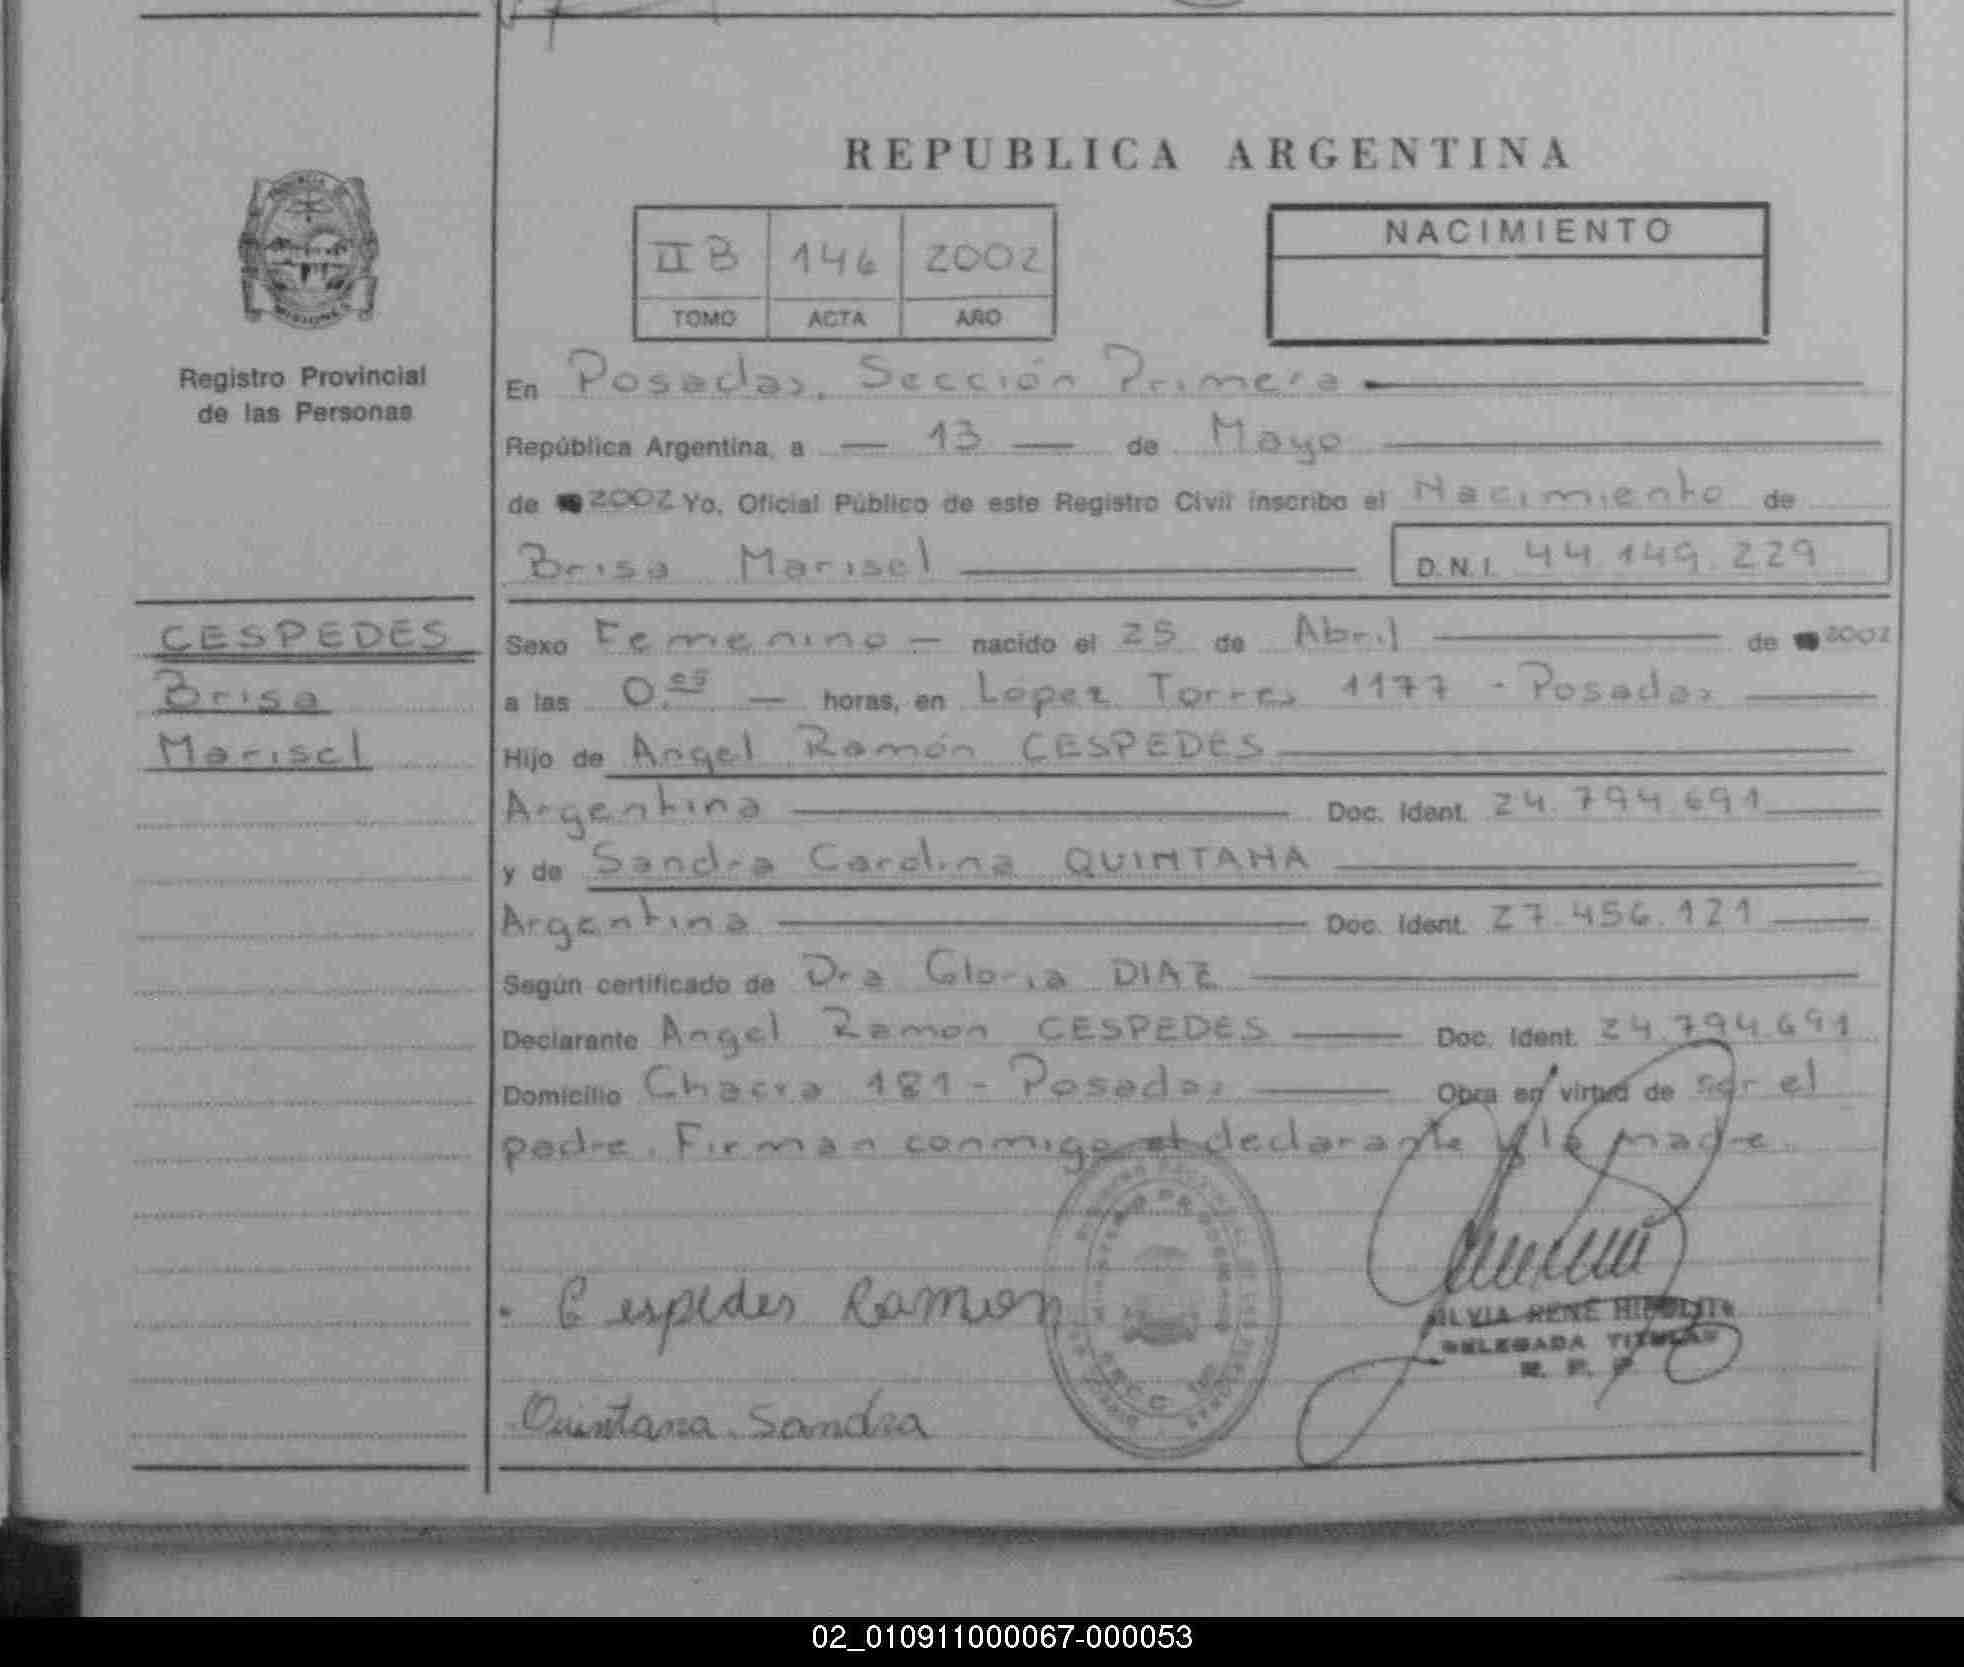 REPUBLICA ARGENTINA
II B 146 2002
TOMO ACTA AÑO
NACIMIENTO
MISIONES
Registro Provincial
de las Personas
En Posadas, Sección Primera
República Argentina, a — 13 — de Mayo
de 2002 Yo, Oficial Público de este Registro Civil inscribo el Nacimiento de
Brisa Marisel D.N.I. 44.149.229
CESPEDES
Brisa
Marisel
Sexo Femenino — nacido el 25 de Abril de 2002
a las 0.05 — horas, en López Torres 1177 - Posadas
Hijo de Angel Ramón CESPEDES
Argentina Doc. Ident. 24.794.691
y de Sandra Carolina QUINTANA
Argentina Doc. Ident. 27.456.121
Según certificado de Dra Gloria DIAZ
Declarante Angel Ramón CESPEDES Doc. Ident. 24.794.691
Domicilio Chacra 181 - Posadas Obra en virtud de ser el
padre. Firman conmigo el declarante y la madre.
Cespedes Ramon
SILVIA RENE
DELEGADA TITULAR
R. P. P.
Quintana Sandra
02_010911000067-000053